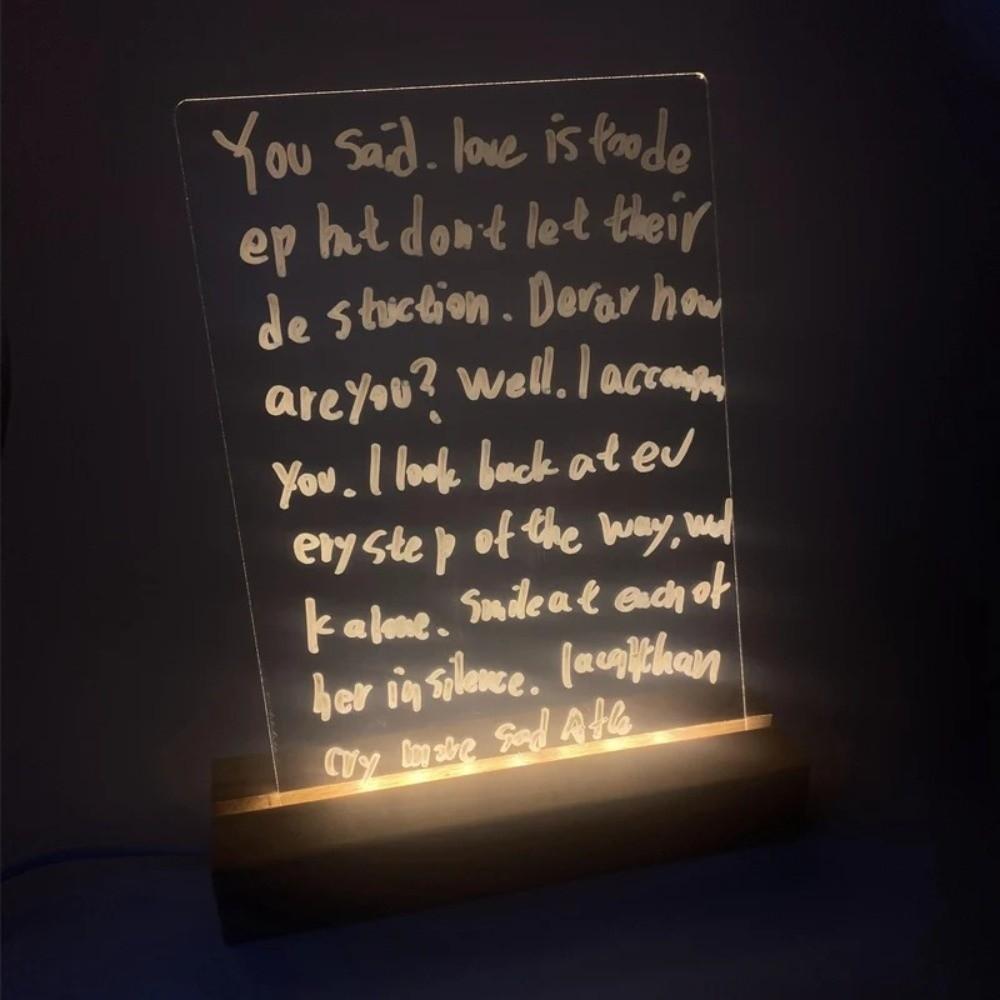 You said. love is too de
ep but don't let their
de stuction. Derar how
are you? well. I accompany
you. I look back at ev
ery step of the way, wal
k alone. Smile at each ot
her in silence. laught than
cry more sad